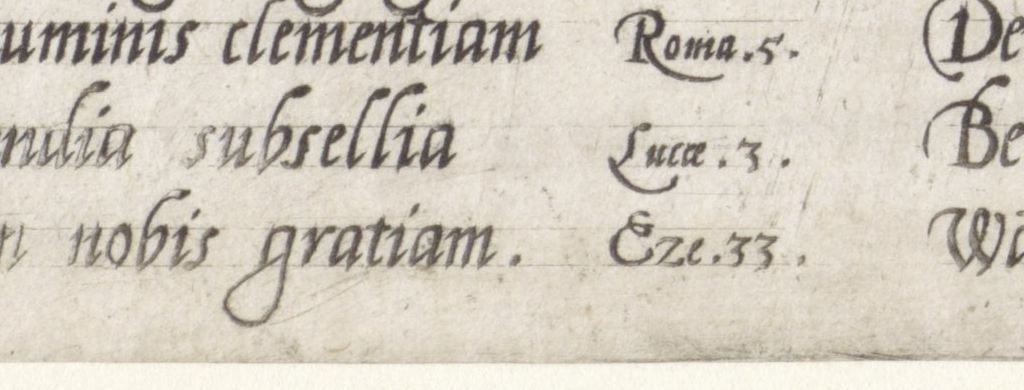 uminis clementiam Roma.5. De
ndia subsellia Lucæ.3. Be
n nobis gratiam. Eze.33. Wa